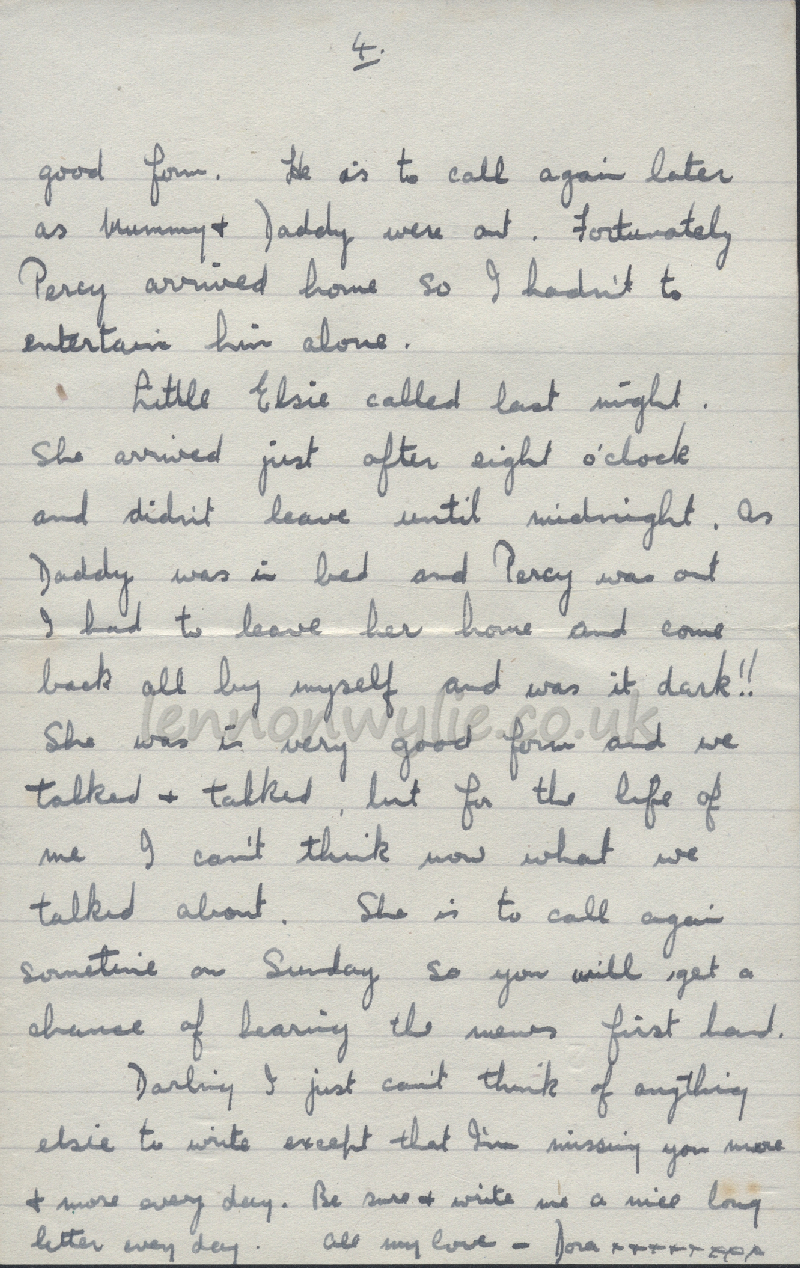 4.
good form. He is to call again later
as Mummy & Daddy were out. Fortunately
Percy arrived home so I hadn't to
entertain him alone.
Little Elsie called last night.
She arrived just after eight o'clock
and didn't leave until midnight. As
Daddy was in bed and Percy was out
I had to leave her home and come
back all by myself and was it dark!!
lennonwylie.co.uk
She was in very good form and we
talked & talked, but for the life of
me I can't think now what we
talked about. She is to call again
sometime on Sunday so you will get a
chance of hearing the news first hand.
Darling I just can't think of anything
elsie to write except that I'm missing you more
& more every day. Be sure & write me a nice long
letter every day. All my love - Dora xxxxxxxxx